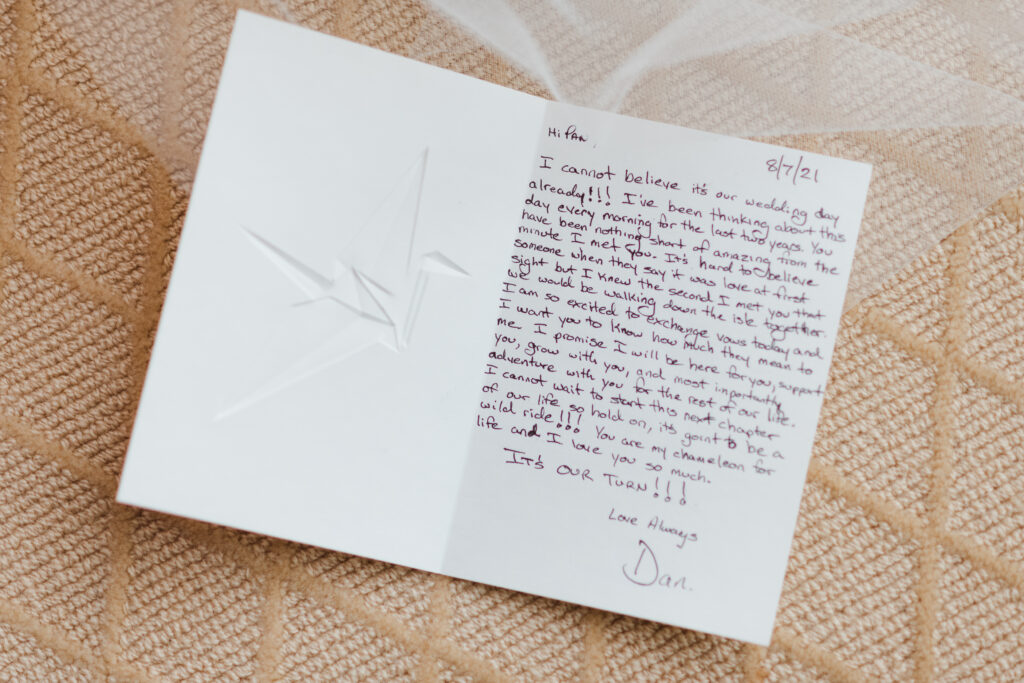 Hi Pan,
8/7/21
I cannot believe it's our wedding day
already!!! I've been thinking about this
day every morning for the last two years. You
have been nothing short of amazing from the
minute I met you. It's hard to believe
someone when they say it was love at first
sight but I knew the second I met you that
we would be walking down the isle together.
I am so excited to exchange vows today and
I want you to know how much they mean to
me. I promise I will be here for you, support
you, grow with you, and most importantly
adventure with you for the rest of our life.
I cannot wait to start this next chapter
of our life so hold on, it's goint to be a
wild ride!!! You are my chameleon for
life and I love you so much.
IT'S OUR TURN!!!
Love Always
Dan.